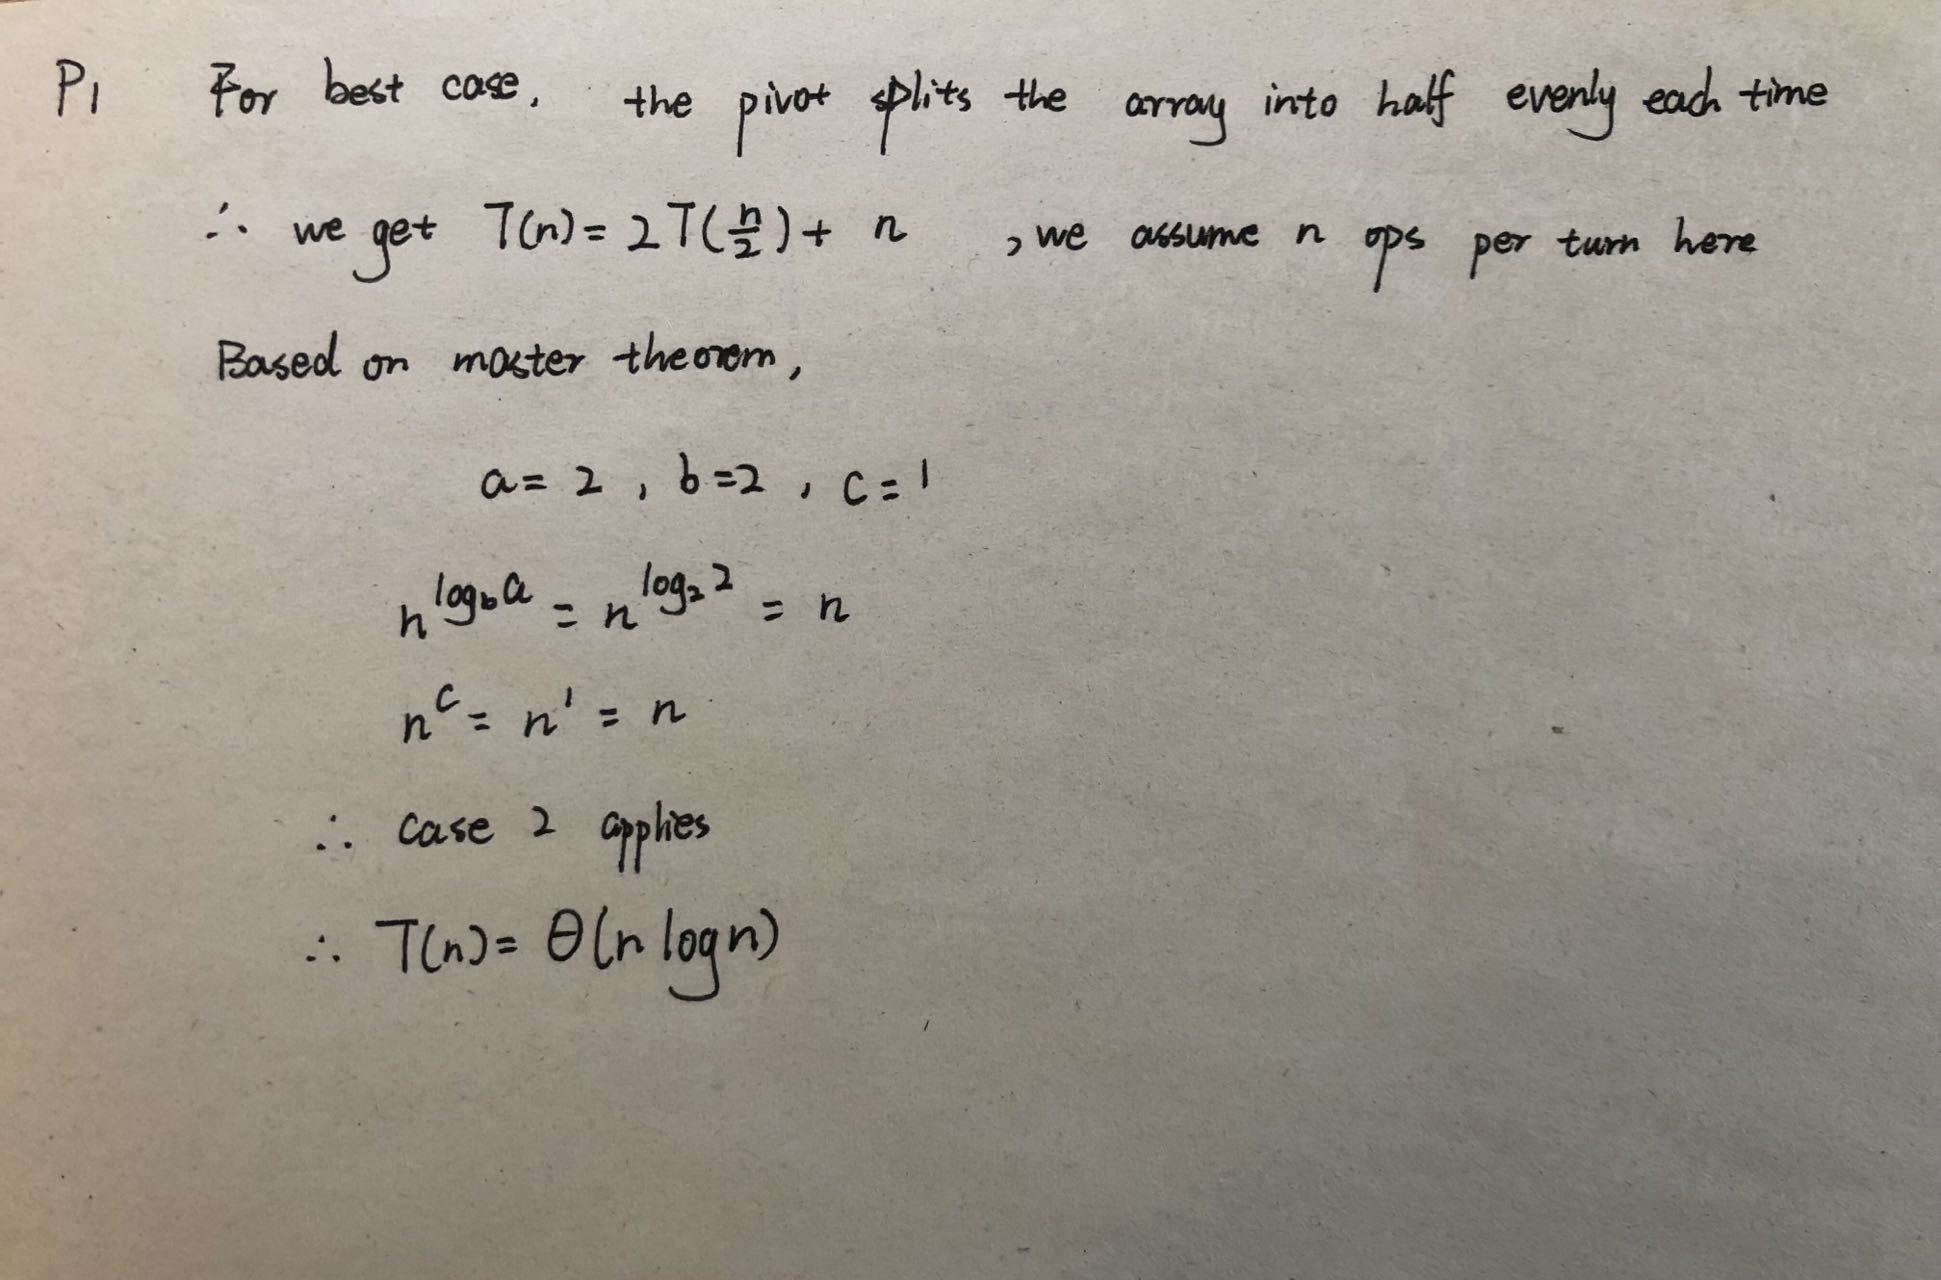 P1 For best case, the pivot splits the array into half evenly each time
∴ we get T(n) = 2T(n/2) + n , we assume n ops per turn here
Based on master theorem,
a = 2 , b = 2 , c = 1
n^(log_b a) = n^(log_2 2) = n
n^c = n^1 = n
∴ case 2 applies
∴ T(n) = Θ(n log n)